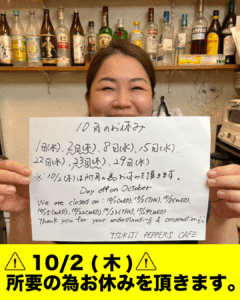 10月のお休み
1日(水), 2日(木), 8日(水), 15日(水),
22日(水), 23日(木), 29日(水)
※ 10/2(木)は所用の為お休みを頂きます。
Day off on October
We are closed on: 10/1(WED), 10/2(THU), 10/8(WED),
10/15(WED), 10/22(WED), 10/23(THU), 10/29(WED)
Thank you for your understanding & cooperation
TSUKIJI PEPPER'S CAFE
⚠ 10/2 (木) ⚠
所要の為お休みを頂きます。